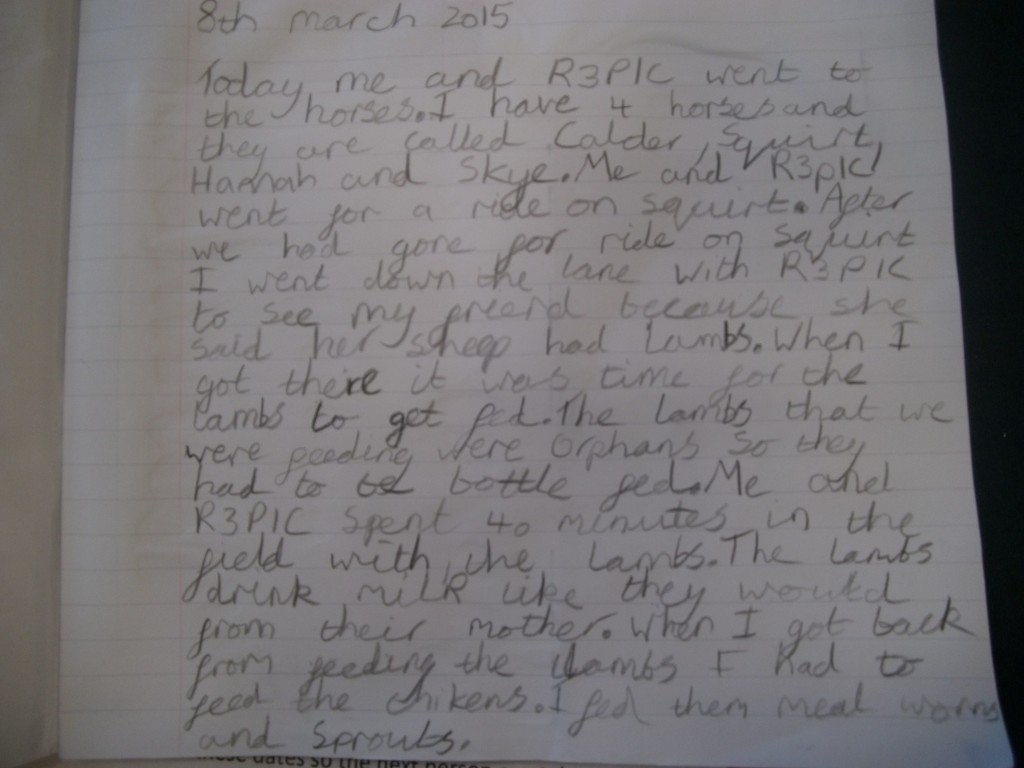 8th march 2015
Today me and R3PIC went to
the horses.I have 4 horses and
they are called Calder, Squirt,
Hannah and Skye.Me and R3pIC
went for a ride on squirt. After
we had gone for ride on Squirt
I went down the lane with R3PIC
to see my freend because she
said her sheep had lambs.When I
got there it was time for the
lambs to get fed.The lambs that we
were feeding were Orphans So they
had to be bottle fed.Me and
R3PIC Spent 40 minutes in the
field with the lambs.The lambs
drink milk like they would
from their mother.When I got back
from feeding the lambs I had to
feed the chikens.I fed them meal worms
and Sprouts.
these dates so the next person